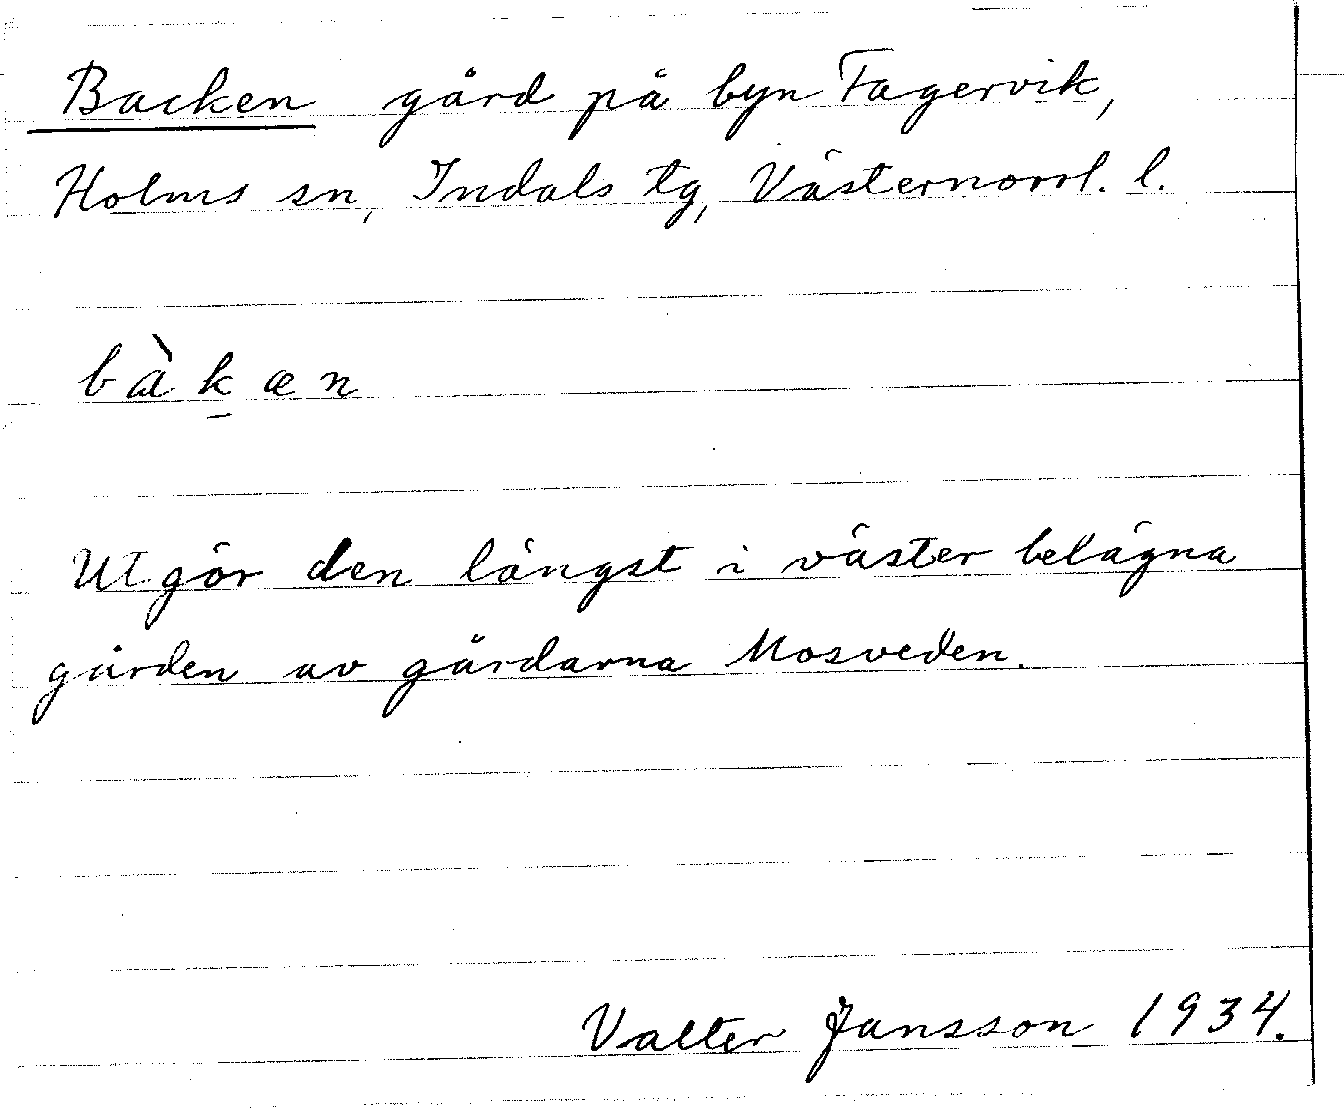 Backen gård på byn Fagervik,
Holms sn, Indals tg, Västernorrl. l.
bàk̠æn
Utgör den längst i väster belägna
gården av gårdarna Mosveden.
Valter Jansson 1934.